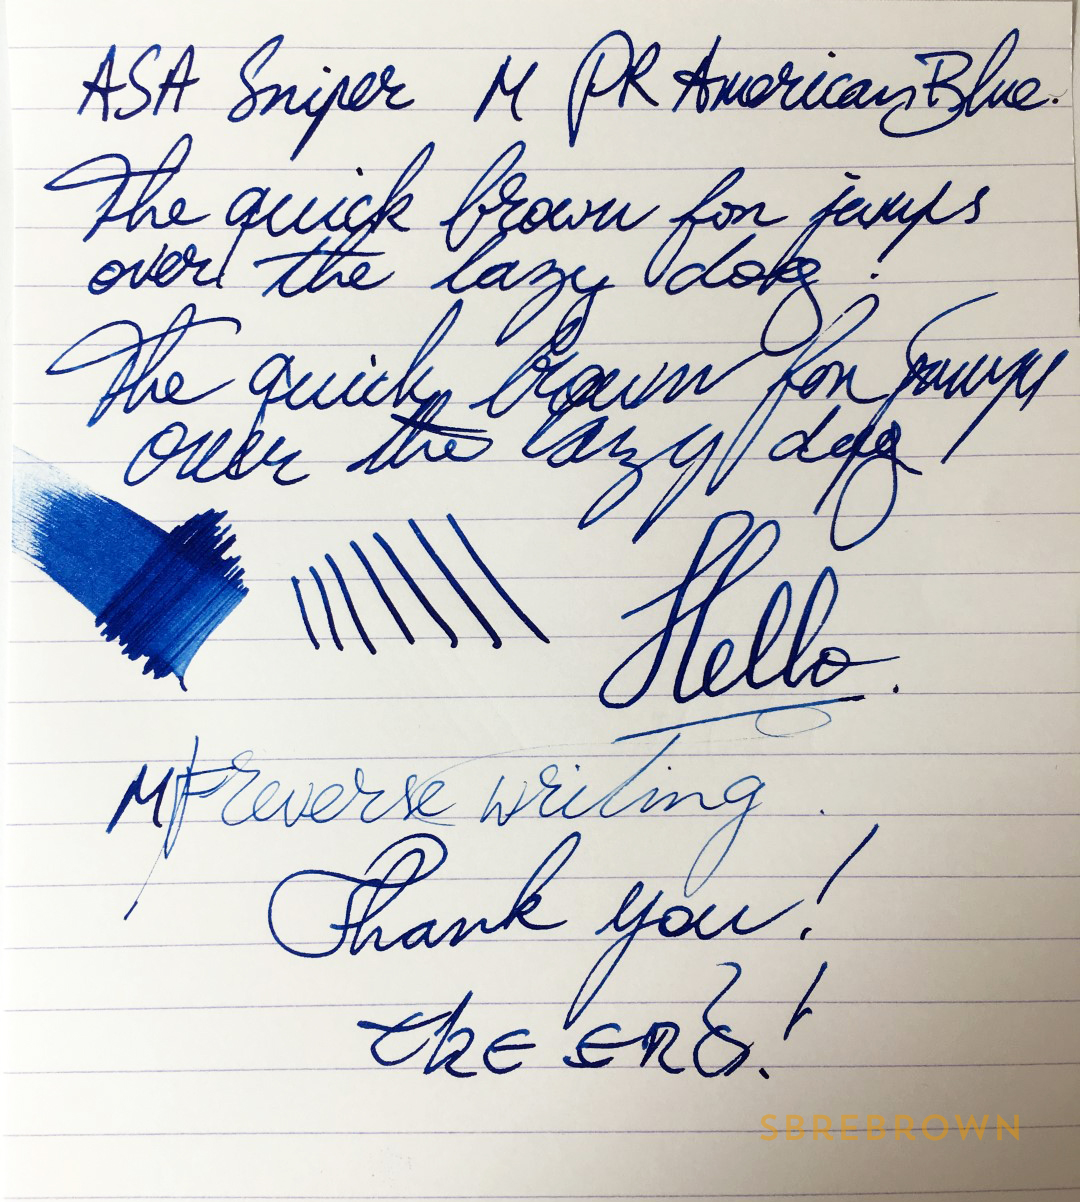 ASA Sniper M PR American Blue.
The quick brown fox jumps
over the lazy dog!
The quick brown fox jumps
over the lazy dog!
Hello.
M F reverse writing.
Thank you!
the end!
SBREBROWN